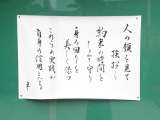 人の顔を見て
挨拶し
約束の時間を
きっちり守り
身の回りを
美しく保つ
これらの実践が
自身の信用になる